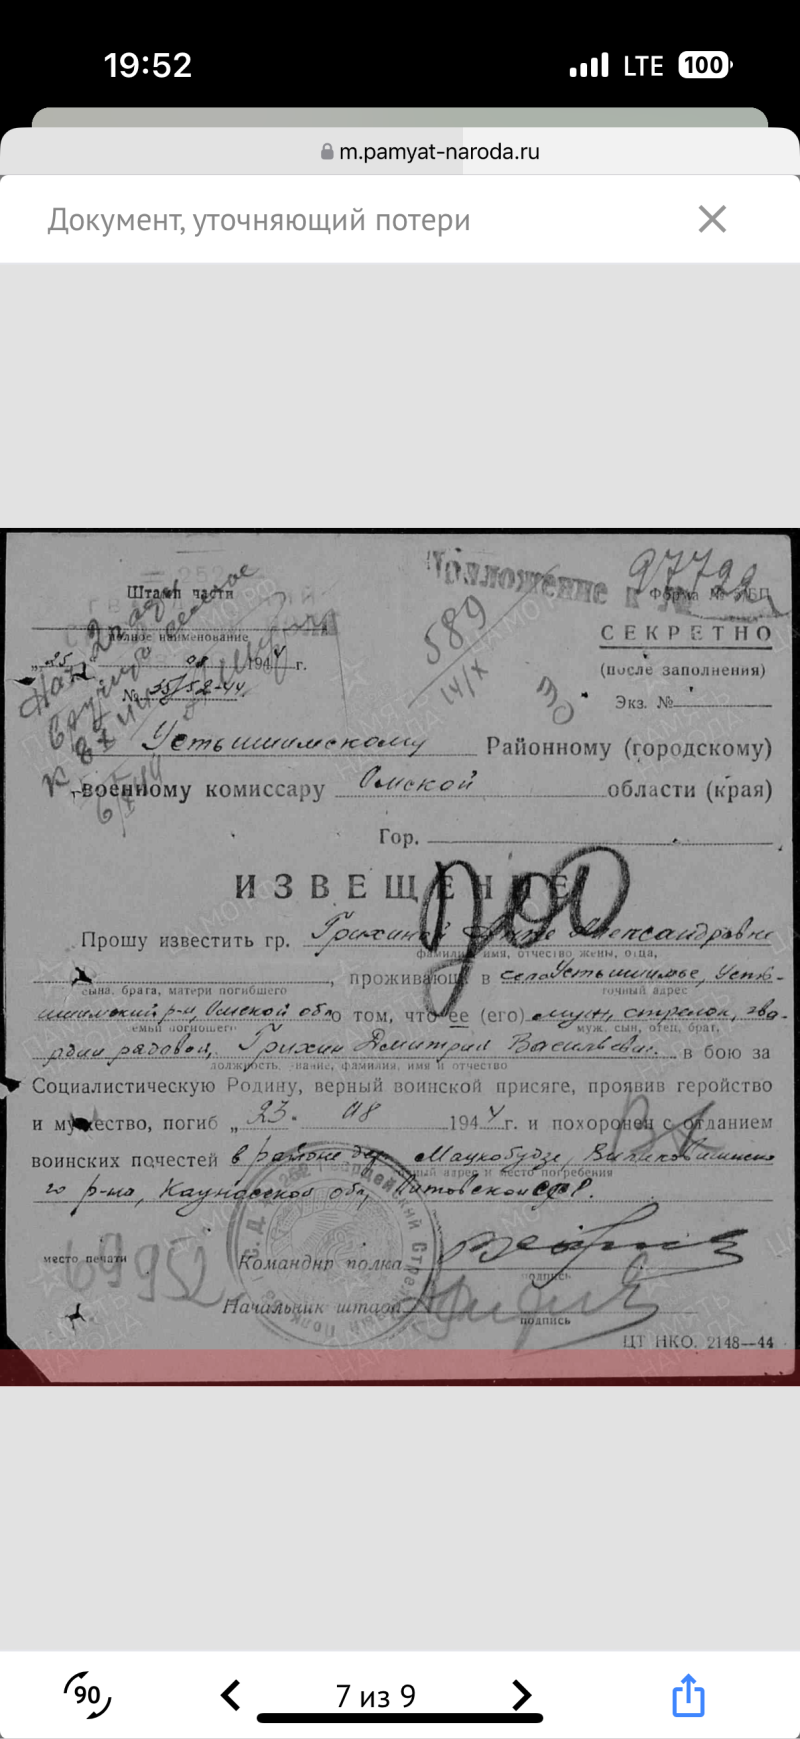 19:52
LTE 100
m.pamyat-naroda.ru
Документ, уточняющий потери
Приложение к № 97722
Штамп части
Форма №
полное наименование
589
14/X
СЕКРЕТНО
(после заполнения)
„25" 08 1944 г.
Экз. №
№
Усть-Ишимскому Районному (городскому)
военному комиссару Омской области (края)
Гор.
ИЗВЕЩЕНИЕ
Прошу известить гр. Грихиной Анне Александровне
фамилия, имя, отчество жены, отца,
, проживающ. в село Устьишимье, Усть-
сына, брата, матери погибшего
точный адрес
ишимский р-н, Омской обл о том, что ее (его) муж, стрелок, гва-
семьи погибшего
муж, сын, отец, брат,
рдии рядовой, Грихин Дмитрий Васильевич в бою за
должность, звание, фамилия, имя и отчество
Социалистическую Родину, верный воинской присяге, проявив геройство
и мужество, погиб „23. 08 1944 г. и похоронен с отданием
воинских почестей в районе дер.
ный адрес и место погребения
го р-на, Каунасской обл, Литовской ССР.
место печати
69952
Командир полка
подпись
Начальник штаба
подпись
ЦТ НКО. 2148—44
90
7 из 9